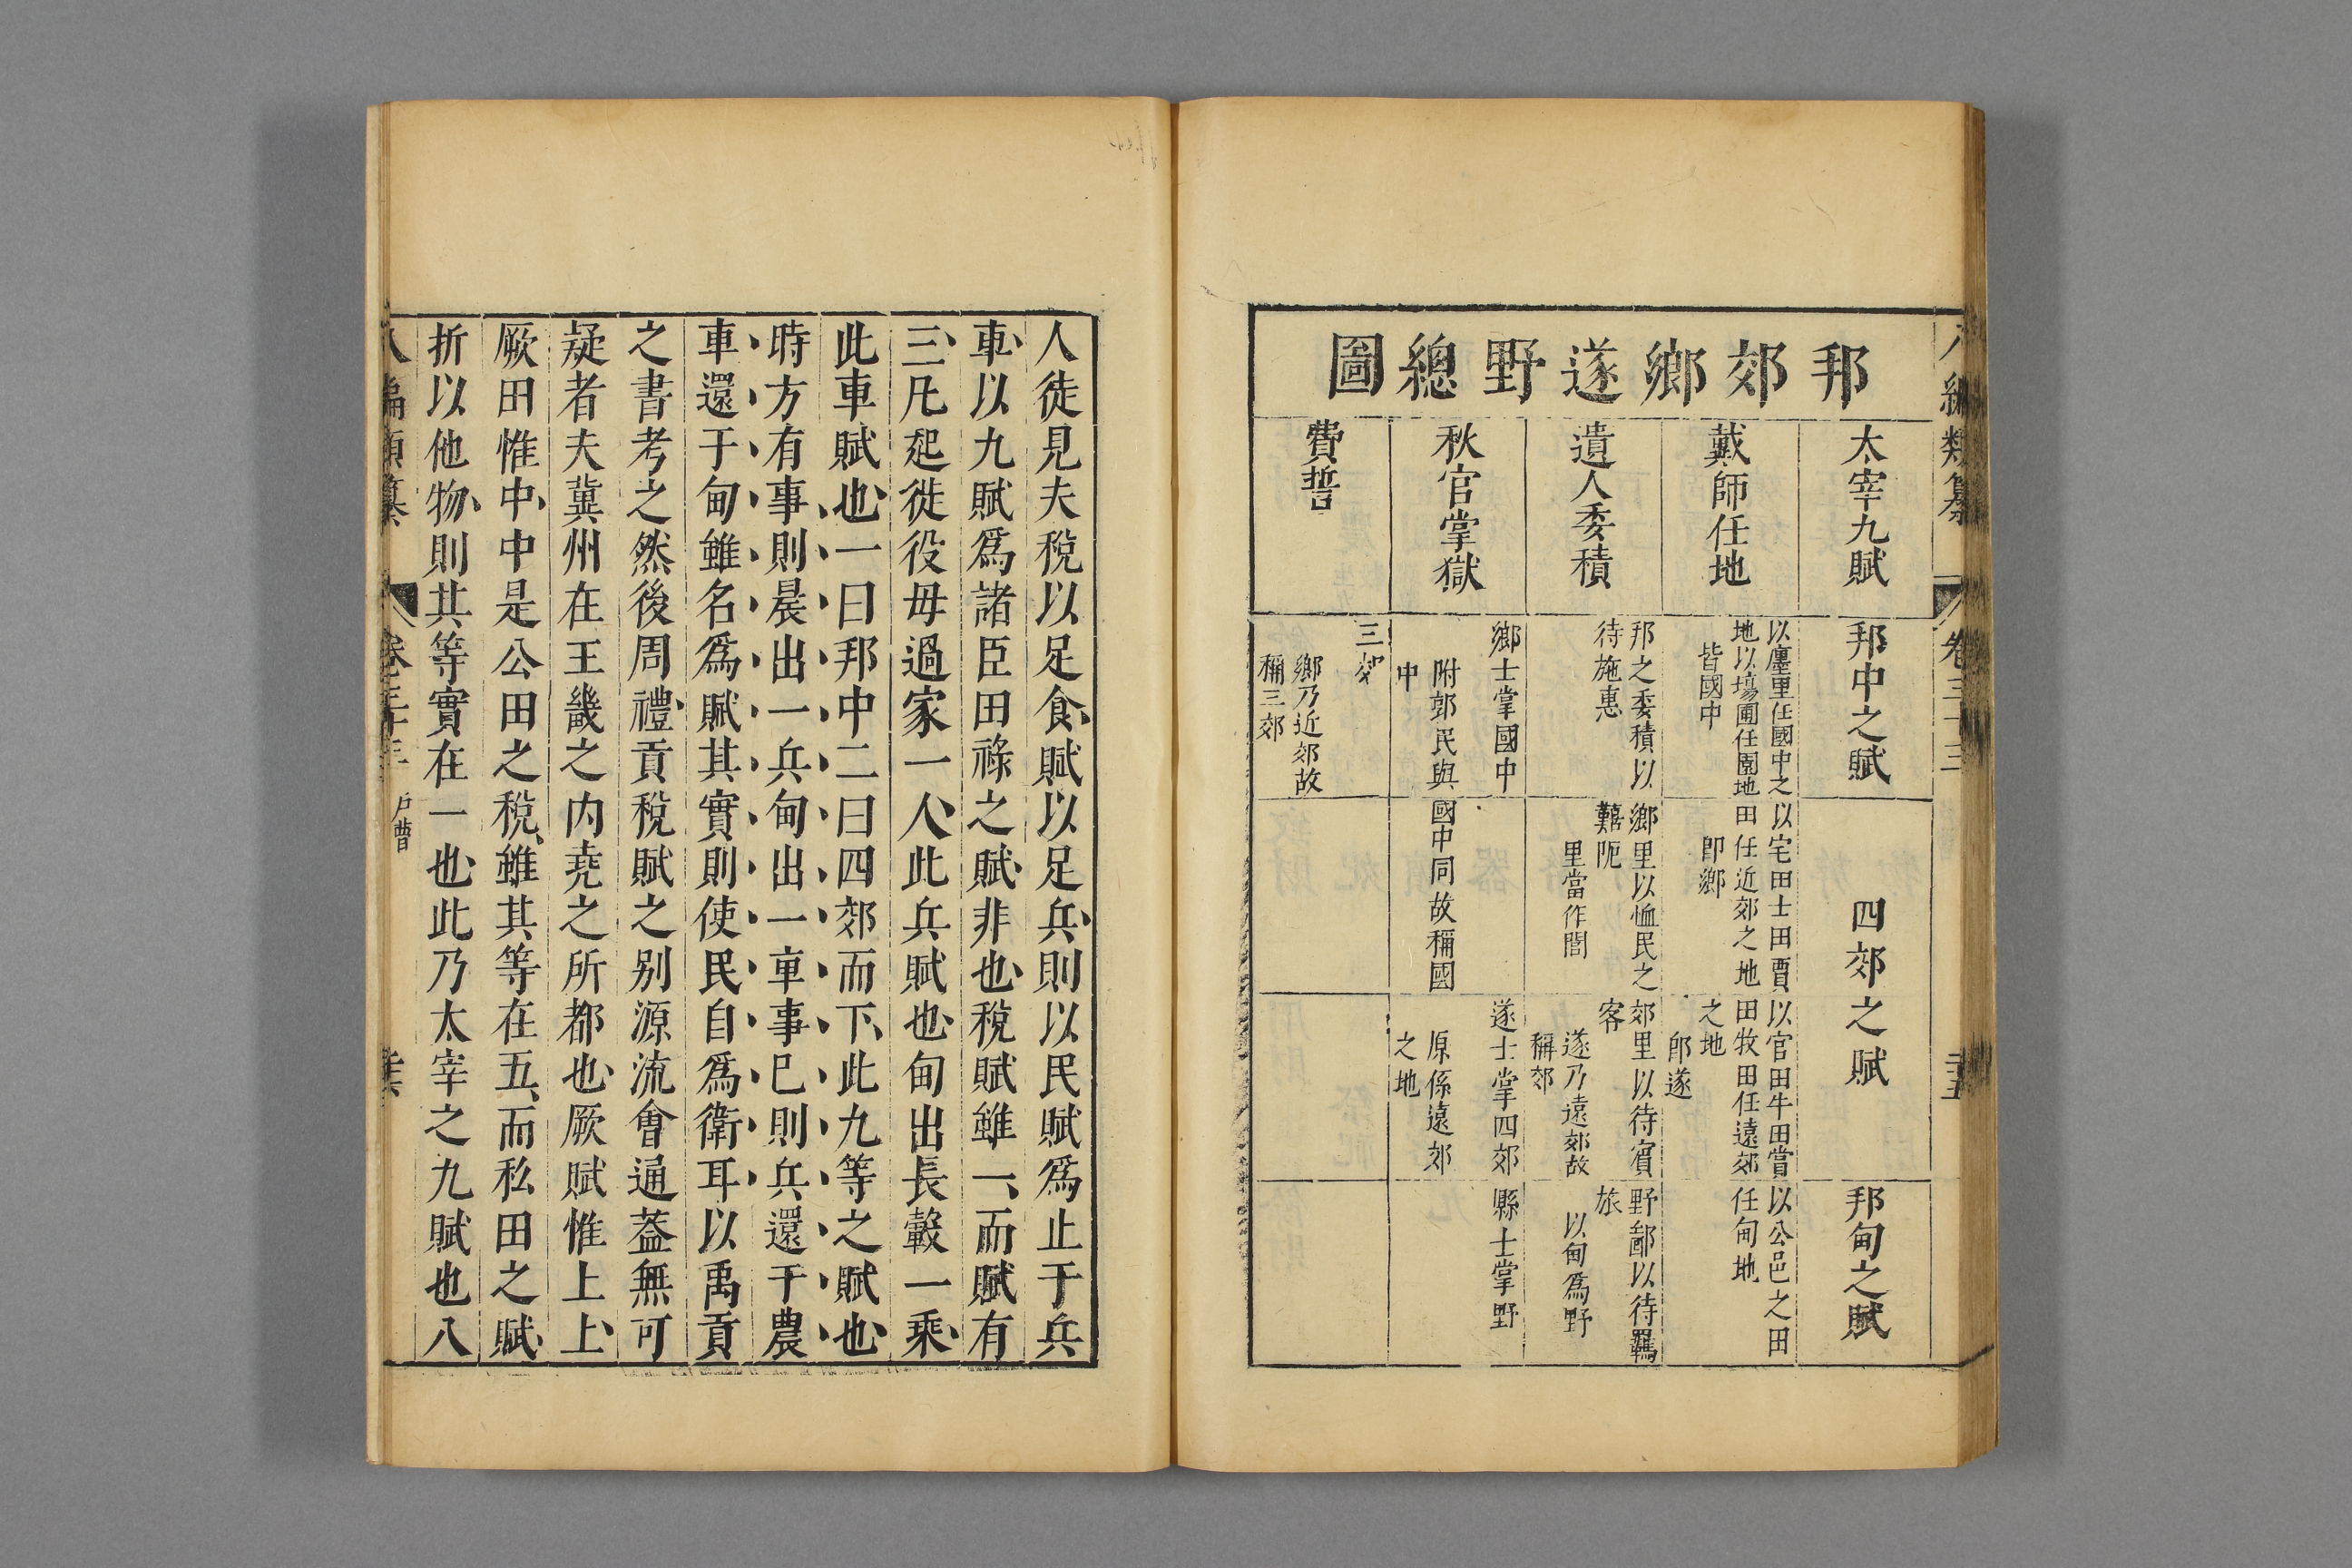 八編類纂 卷三十三 三五
邦郊鄉遂野總圖
太宰九賦
邦中之賦
四郊之賦
邦甸之賦
戴師任地
以廛里任國中之
地以場圃任園地
皆國中
以宅田士田賈
田任近郊之地
卽鄉
以官田牛田嘗
田牧田任遠郊
之地
卽遂
以公邑之田
任甸地
遺人委積
邦之委積以
待施惠
鄉里以恤民之
囏阨
里當作閭
郊里以待賓
客
遂乃遠郊故
稱郊
野鄙以待羈
旅
以甸爲野
秋官掌獄
鄉士掌國中
附郭民與國中同故稱國
中
遂士掌四郊
原係遠郊
之地
縣士掌野
費誓
三郊
鄉乃近郊故
稱三郊
人徒見夫稅以足食賦以足兵則以民賦爲止于兵
車以九賦爲諸臣田祿之賦非也稅賦雖一而賦有
三凡起徙役毋過家一人此兵賦也甸出長轂一乘
此車賦也一曰邦中二曰四郊而下此九等之賦也
時方有事則晨出一兵甸出一車事已則兵還于農
車還于甸雖名爲賦其實則使民自爲衛耳以禹貢
之書考之然後周禮貢稅賦之别源流會通葢無可
疑者夫冀州在王畿之内堯之所都也厥賦惟上上
厥田惟中中是公田之稅雖其等在五而私田之賦
折以他物則其等實在一也此乃太宰之九賦也八
八編類纂 卷三十三 戶曹 三六